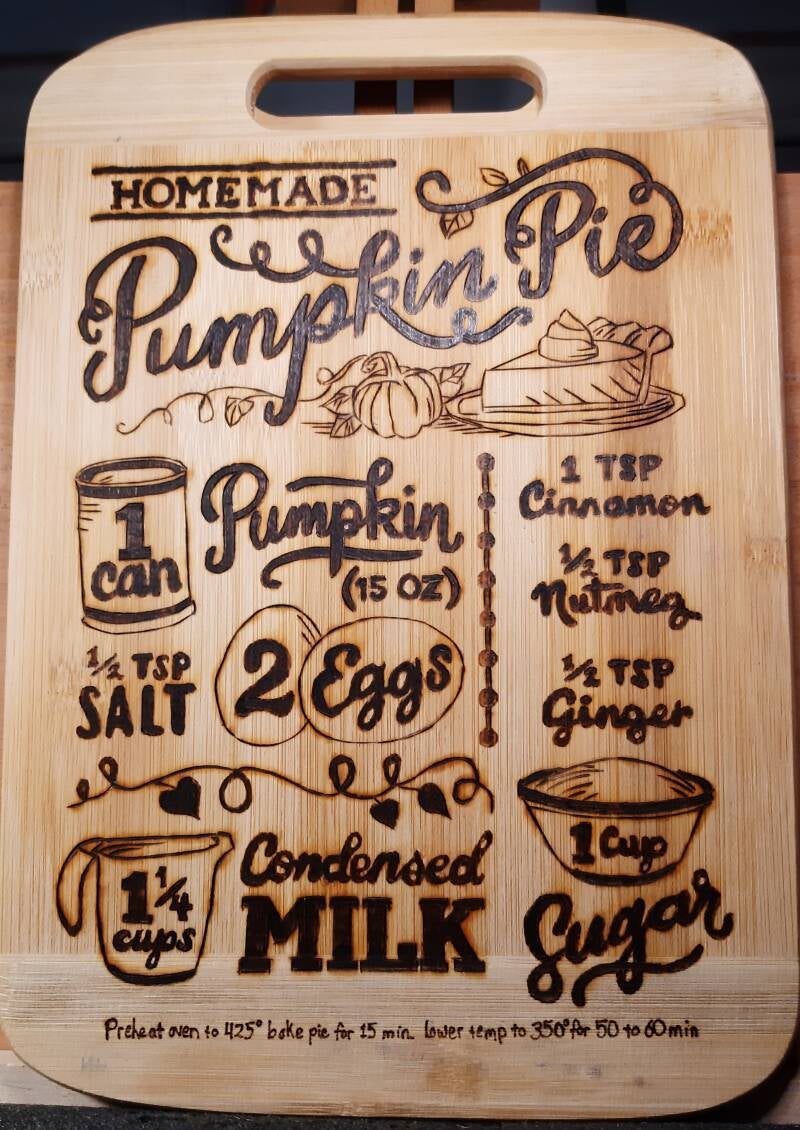 HOMEMADE
Pumpkin Pie
1 can
Pumpkin
(15 OZ)
1/2 TSP
SALT
2 Eggs
1 TSP
Cinnamon
1/2 TSP
Nutmeg
1/2 TSP
Ginger
1 1/4
cups
Condensed
MILK
1 Cup
Sugar
Preheat oven to 425° bake pie for 15 min. lower temp to 350° for 50 to 60 min